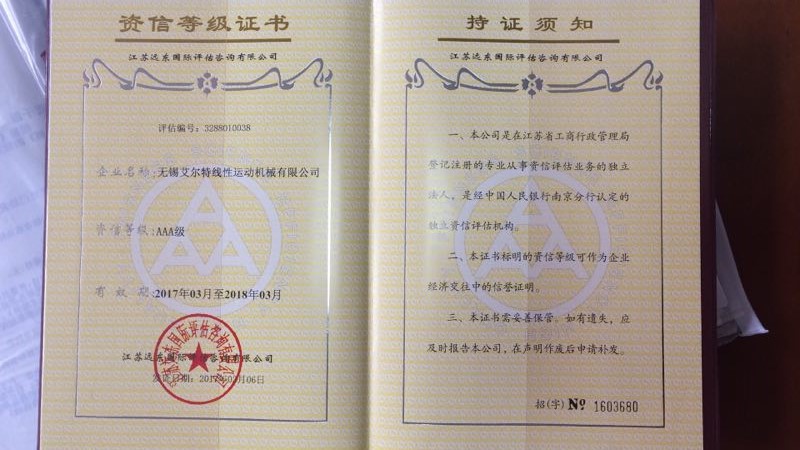 资信等级证书
江苏远东国际评估咨询有限公司
评估编号：3288010038
企业名称：无锡艾尔特线性运动机械有限公司
资信等级：AAA级
有效期：2017年03月至2018年03月
江苏远东国际评估咨询有限公司
发证日期：2017年03月06日
持证须知
江苏远东国际评估咨询有限公司
一、本公司是在江苏省工商行政管理局
登记注册的专业从事资信评估业务的独立
法人，是经中国人民银行南京分行认定的
独立资信评估机构。
二、本证书标明的资信等级可作为企业
经济交往中的信誉证明。
三、本证书需妥善保管。如有遗失，应
及时报告本公司，在声明作废后申请补发。
招(字) № 1603680